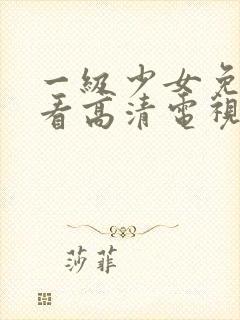 一級少女免
看高清電視
莎菲